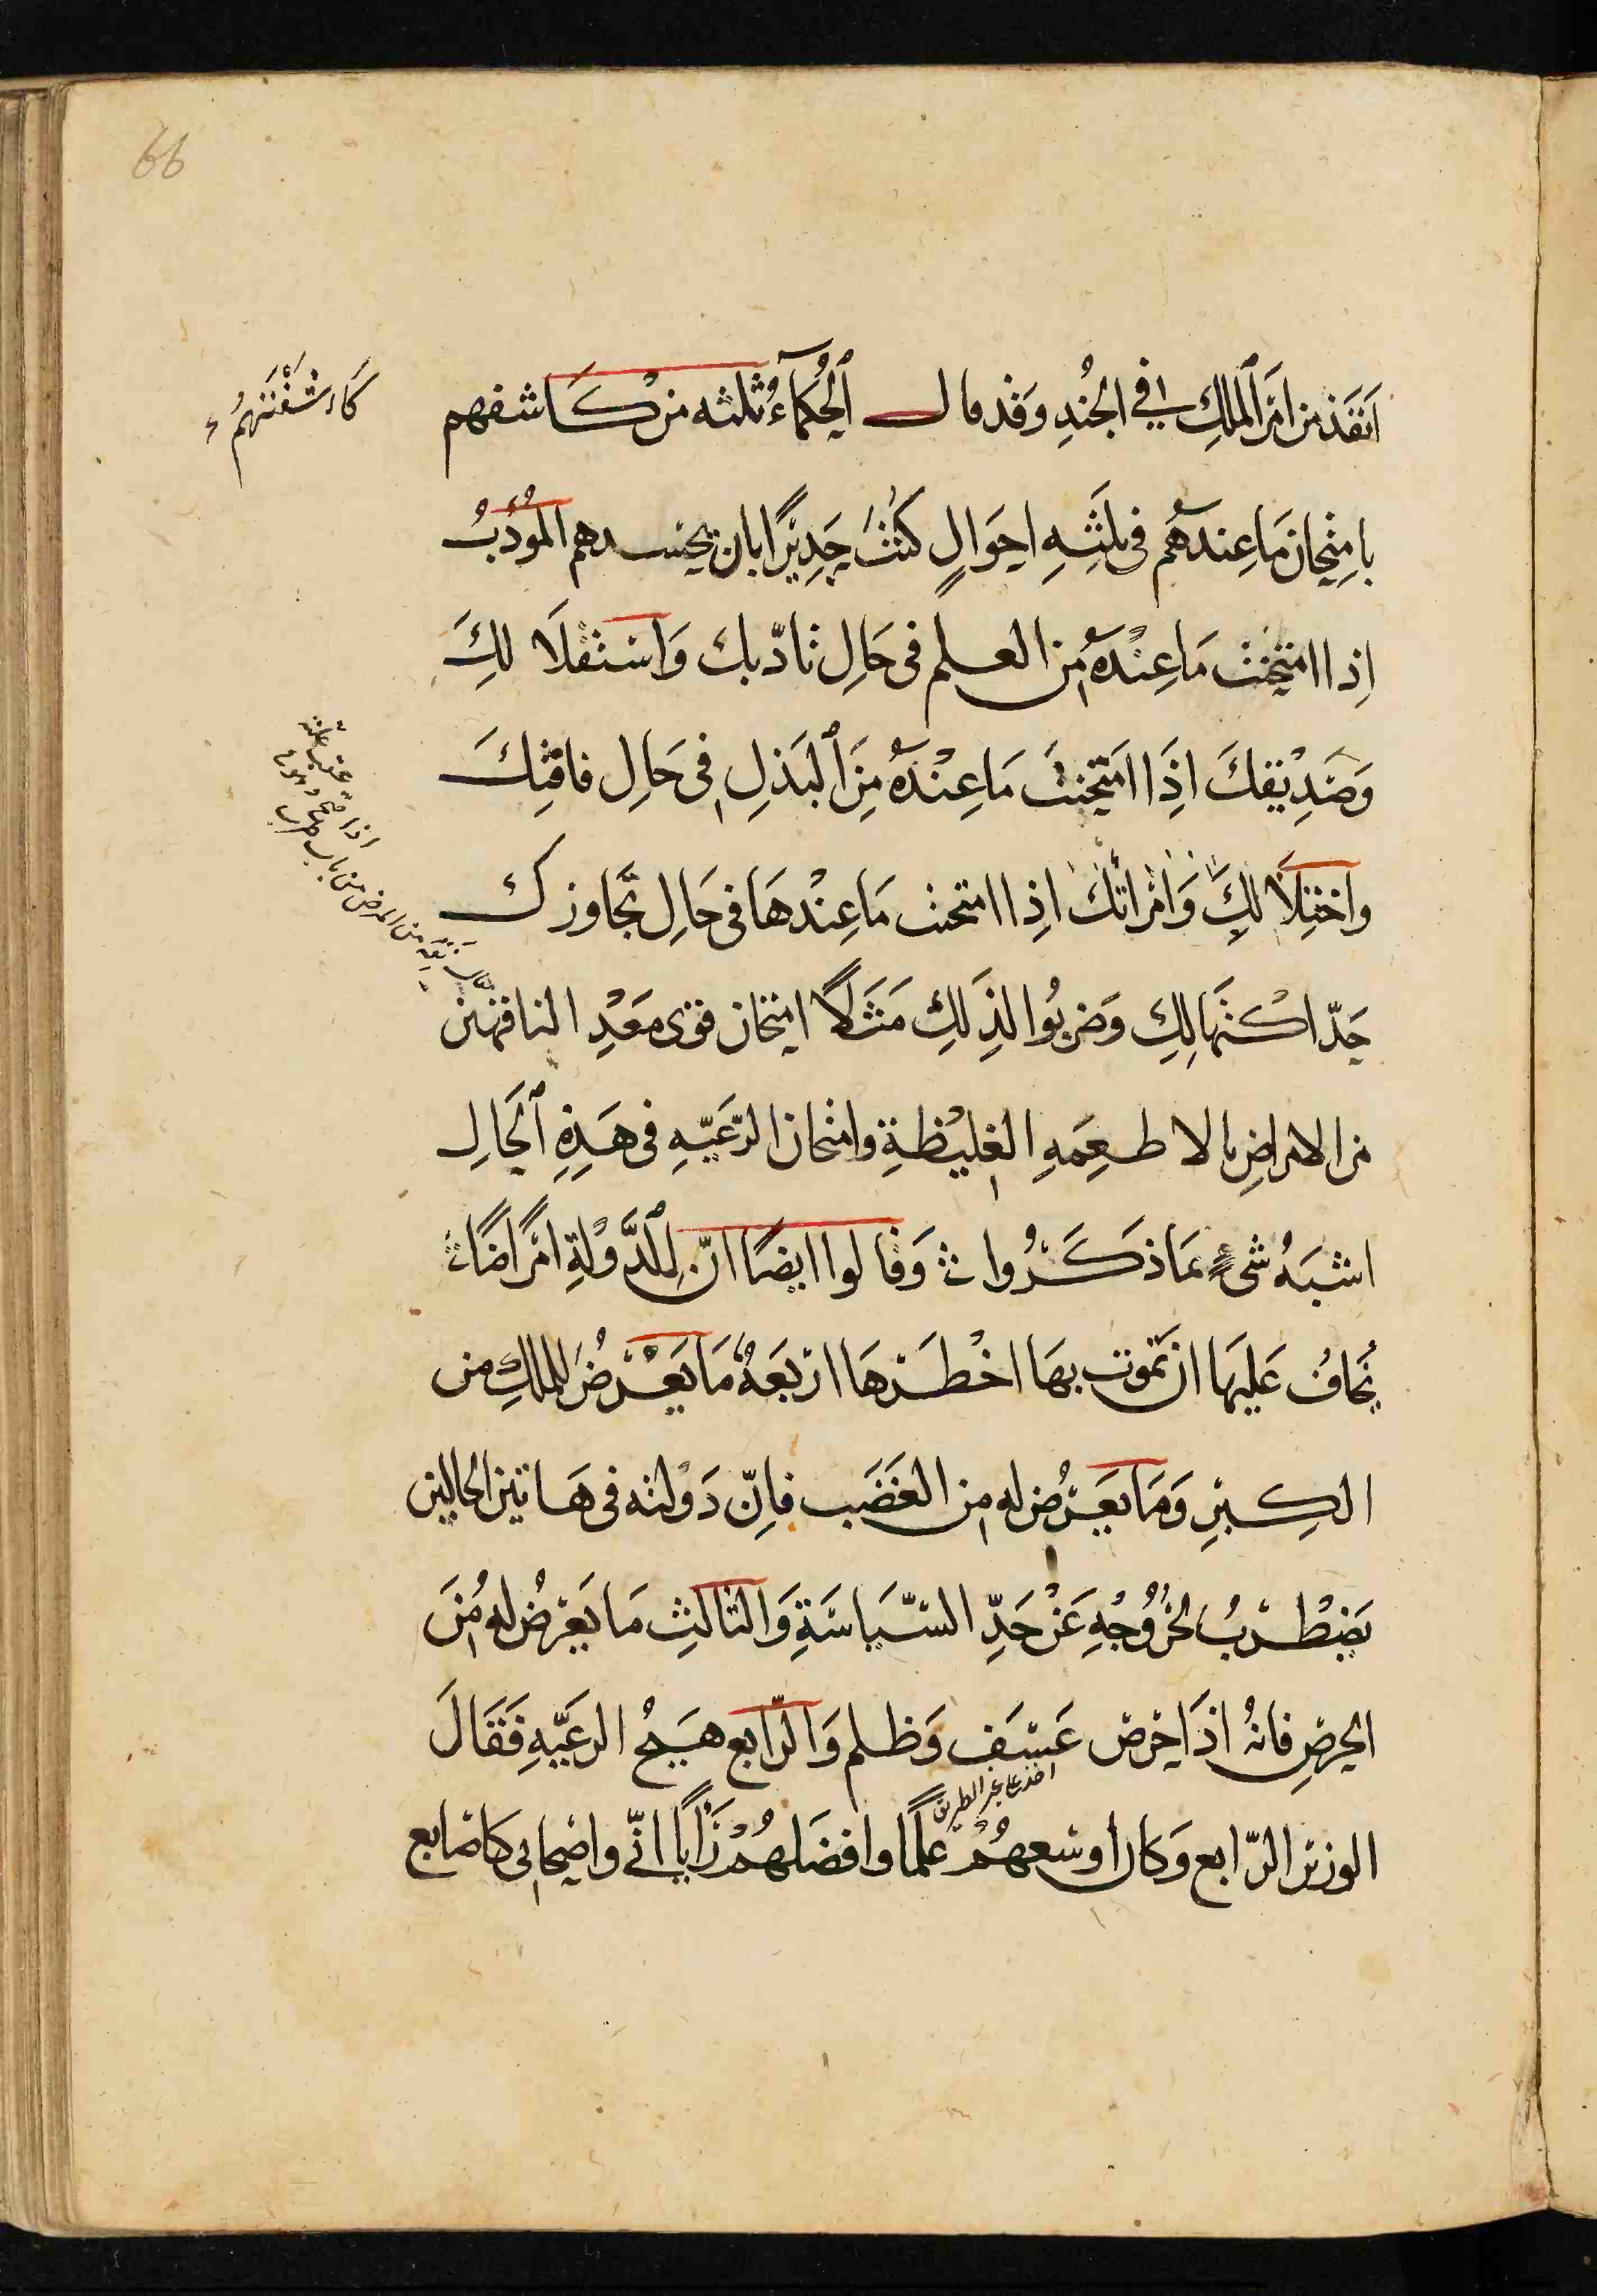 66
اَنفَذ من امَرَ الملكِ في الجُندِ وَقد قال الحُكماءُ ثلثه من كَاشفهم
كَاشَفْتَهُم
بامتِحان مَا عِندهُم فى ثلثِهِ احوَالٍ كُنتَ جَدِيْرًا بان يحسدهم المؤدّبُ
اِذا امتحنتَ مَا عِنْدهُ من العلم فى حَالِ تادّبك وَاستقلالكَ
وَصَدِيْقكَ اذَا امتَحنتَ مَا عِنْدَهُ مِنَ البَذلِ فى حَالِ فاقتِكَ
واختِلَالكَ وَامْرَاتكَ اذا امتحنت مَا عِنْدهَا فى حَالِ تجَاوزك
اذا صحّ وهو فى عقب علته
حَدّ اكتهَالكِ وَضربُوا لذِلكِ مَثَلًا امتحَان قوى معَدِ الناقهين
من المرض من باب طرب
من الامراضِ بالاطعِمَهِ الغليْظةِ وامتحان الرَّعيّهِ فى هَذِهِ الحَالِ
اشبَهُ شىءٍ بمَا ذكَرُوا وَقالوا ايضًا انّ للدَّوْلةِ امْرَاضًا
يُخافُ عَليهَا ان تَموت بهَا اخْطَرهَا ارْبَعةٌ مَا يَعْرضُ للملكِ من
الكِبْرِ وَمَا يَعرُض له من الغَضَب فاِنّ دَوْلته فى هَاتين الحالين
تضْطربُ لخرُوْجهِ عَنْ حَدِّ السّيَاسَةِ وَالثالثِ مَا يَعْرضُ له مِنَ
الحرْصِ فانهُ اذَا حَرَصَ عَسَف وَظلم وَالرّابع هَيجُ الرعَيّهِ فَقَالَ
اخذ على غير الطريق
الوزير الرّابع وَكان أوسَعهُمْ عِلمًا وافضَلهُمْ رَأيا انّى واصْحابى كاصَابع